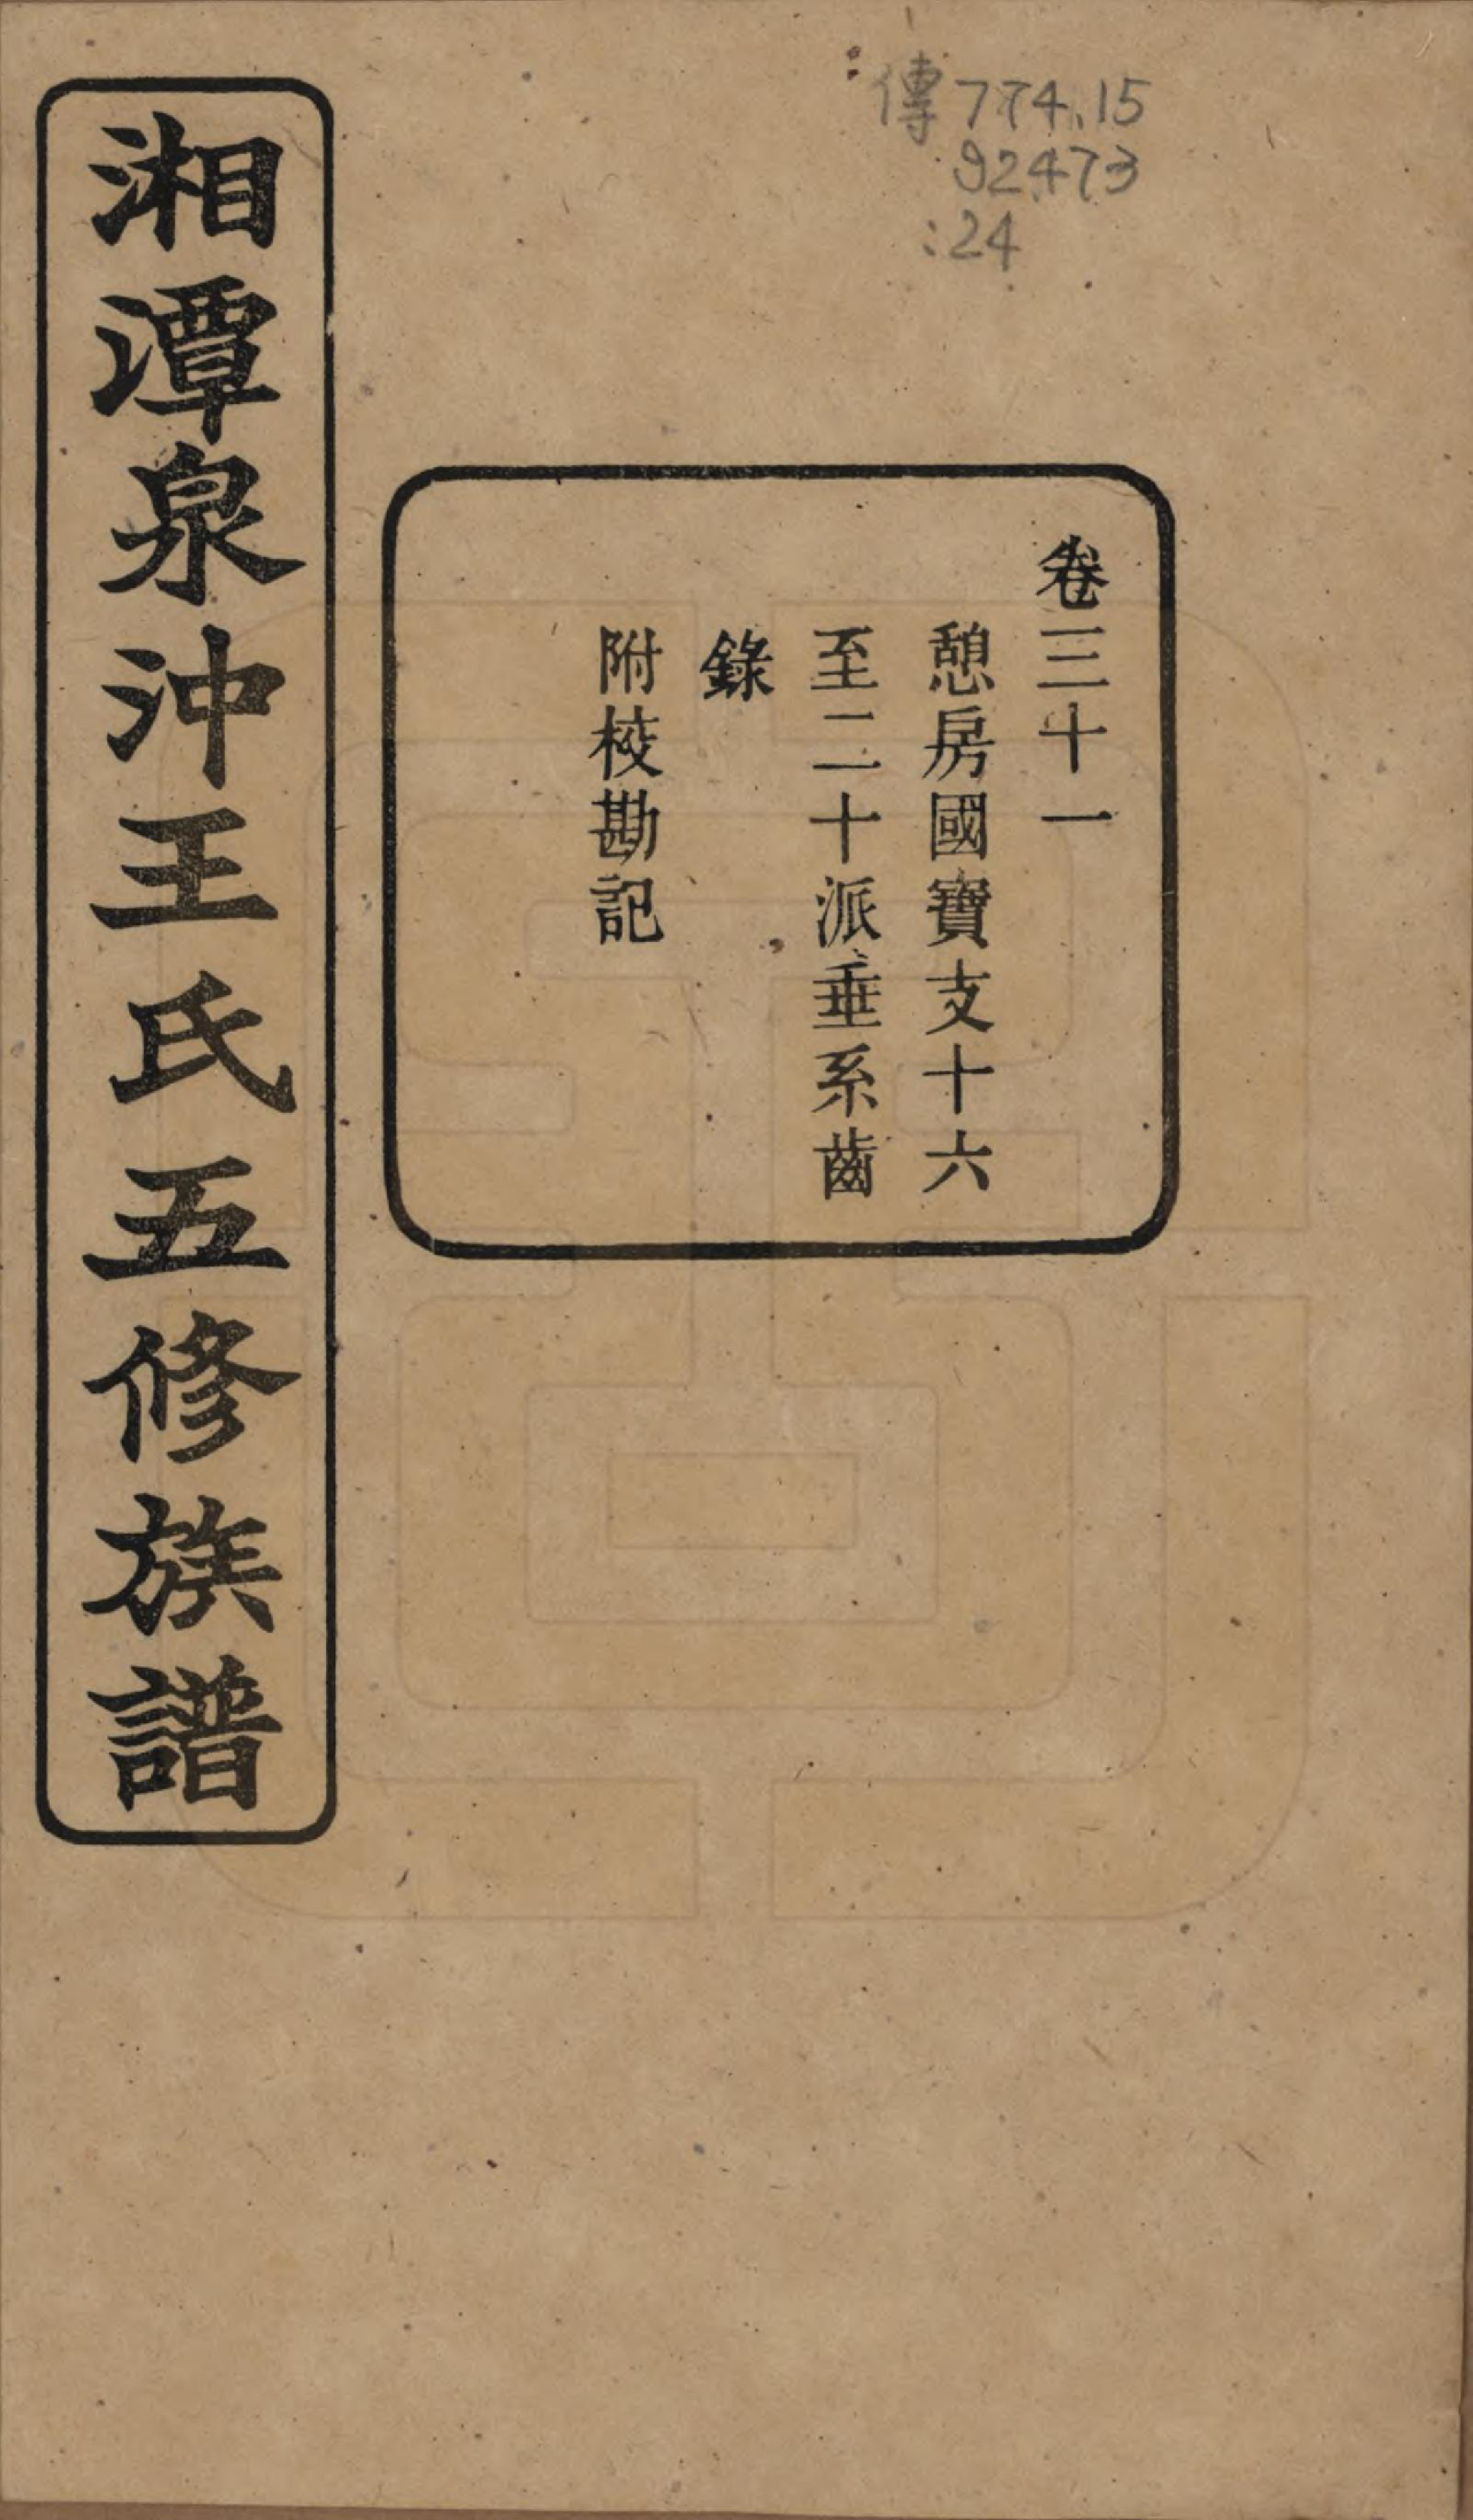 傳774.15
92473
:24
卷三十一
憩房國寶支十六
至二十派垂系齒
錄
附校勘記
湘潭泉沖王氏五修族譜